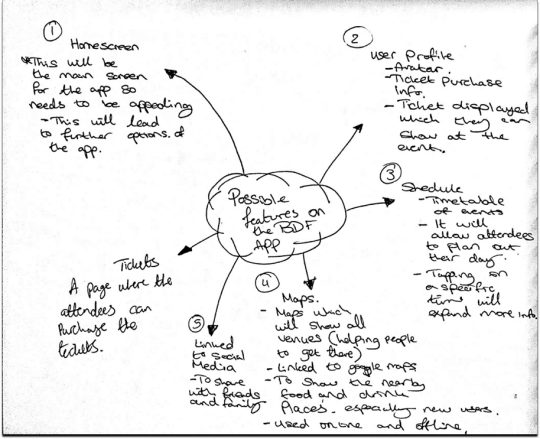 Possible
features on
the BDF
APP
①
Homescreen
*This will be
the main screen
for the app so
needs to be appealing
- This will lead
to further options of
the app.
②
User Profile
- Avatar.
- Ticket Purchase
Info.
- Ticket displayed
which they can
show at the
event.
③
Schedule
- Timetable
of events
- It will
allow attendees
to plan out
their day.
- Tapping on
a specific
time will
expand more info.
④
Maps.
- Maps which
will show all
venues (helping people
to get there)
- Linked to google maps
- To show the nearby
food and drink
places. especially new users.
- Used online and offline,
⑤
Linked
to Social
Media
- To share
with friends
and family
Tickets
A page where the
attendees can
purchase the
tickets.